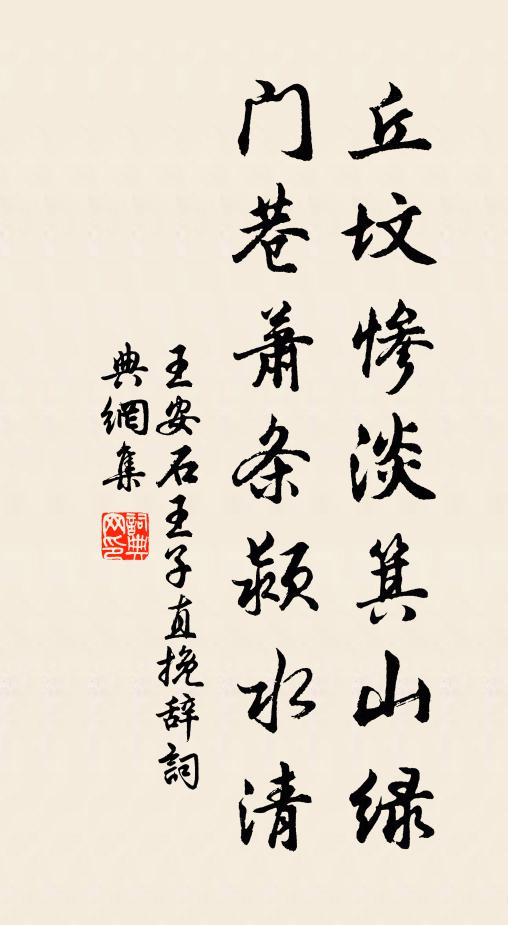 丘坟惨淡箕山绿
门巷萧条颍水清
王安石王子直挽辞词
典網集
詞典网印